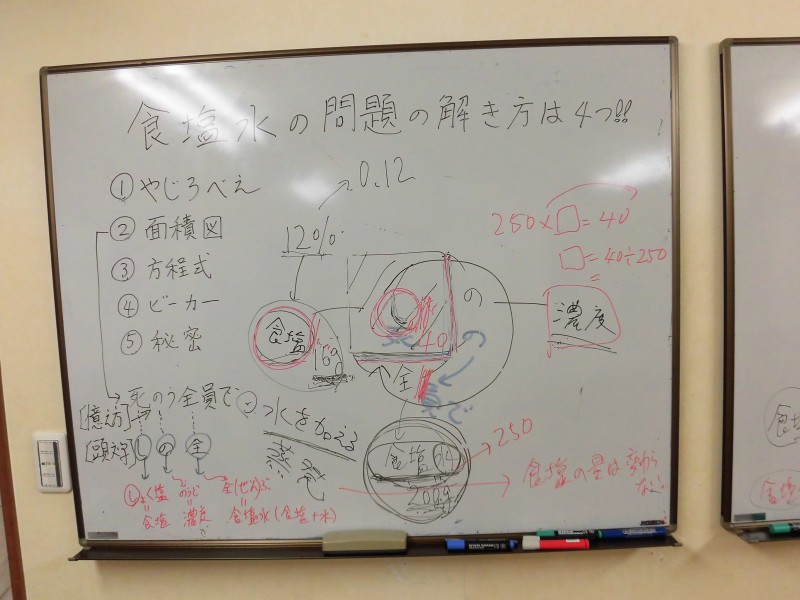 食塩水の問題の解き方は4つ!!
①やじろべえ
②面積図
③方程式
④ビーカー
⑤秘密
0.12
12%
食塩
16g
し
40
の
全
濃度
250×□=40
□=40÷250
=
死のう全員で
[覚え方]
[頭文字]
し の 全
しょく塩
=
食塩
のうど
=
濃度
全(ぜんぶ)
=
食塩水(食塩+水)
水を加える
蒸発
食塩
200g
250
食塩の量は変わらない
食塩